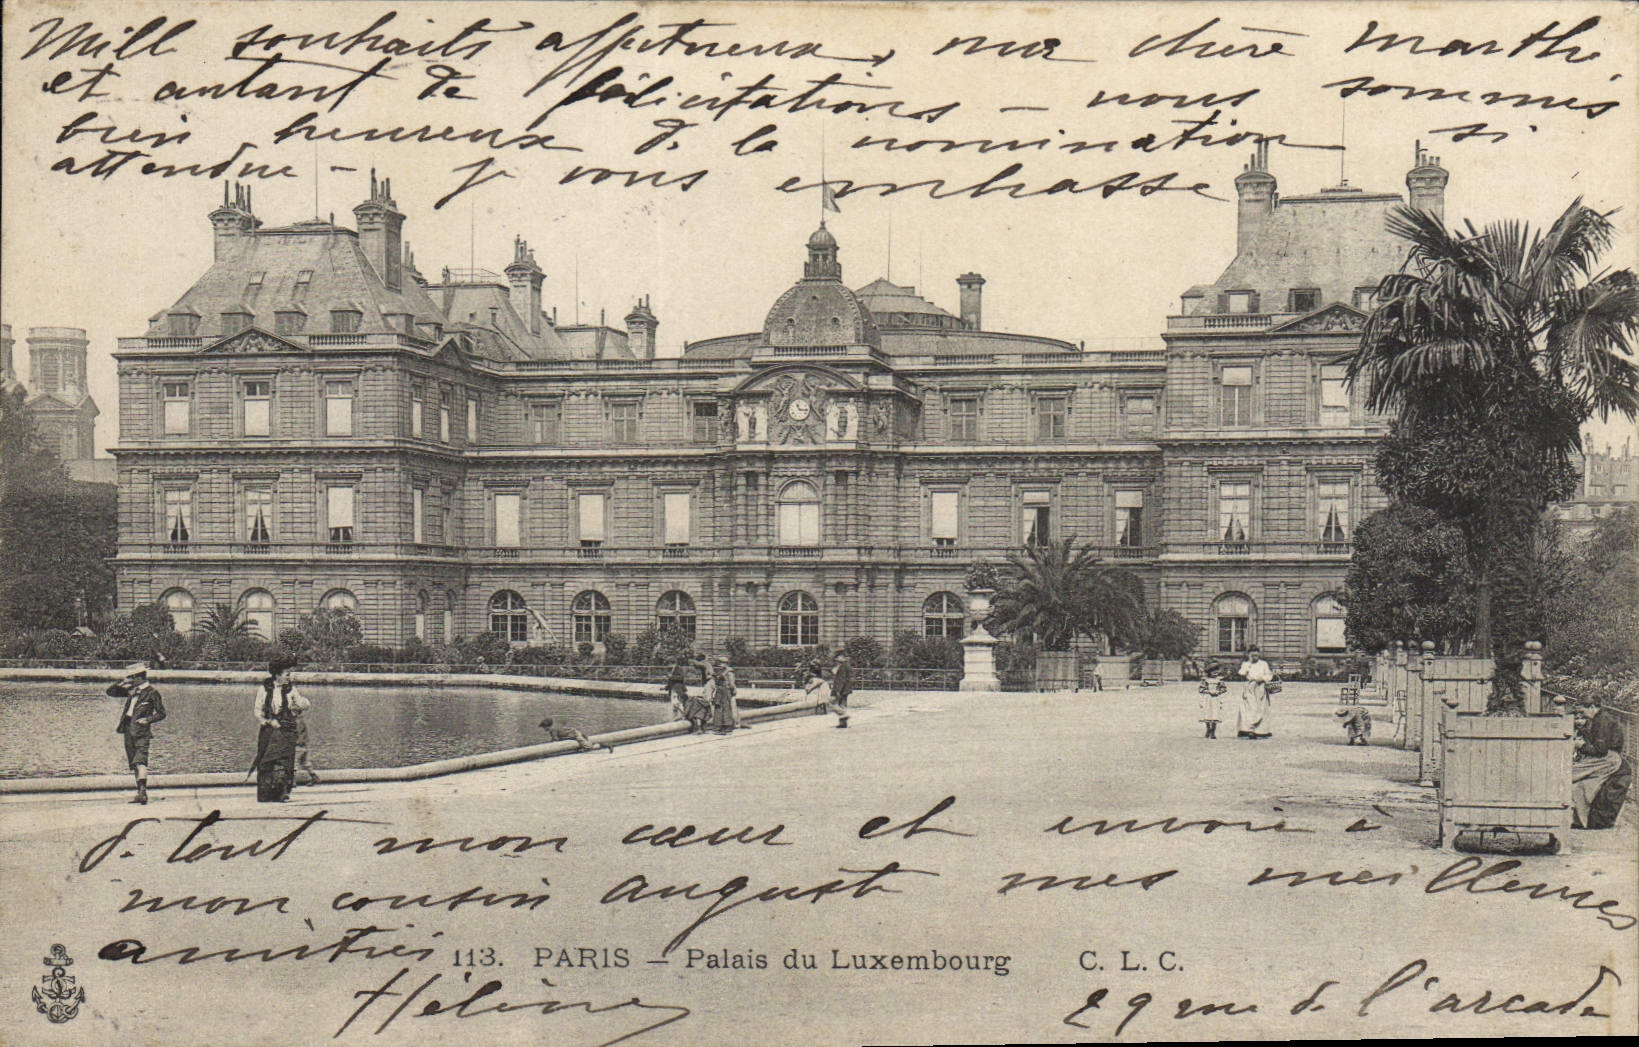 Mill souhaits affectueux, ma chère Marthe,
et autant de félicitations – nous sommes
bien heureux de la nomination si
attendue – je vous embrasse
de tout mon cœur et envoie à
mon cousin Auguste mes meilleures
amitiés
113. PARIS – Palais du Luxembourg C. L. C.
Hélène
29 rue de l'arcade